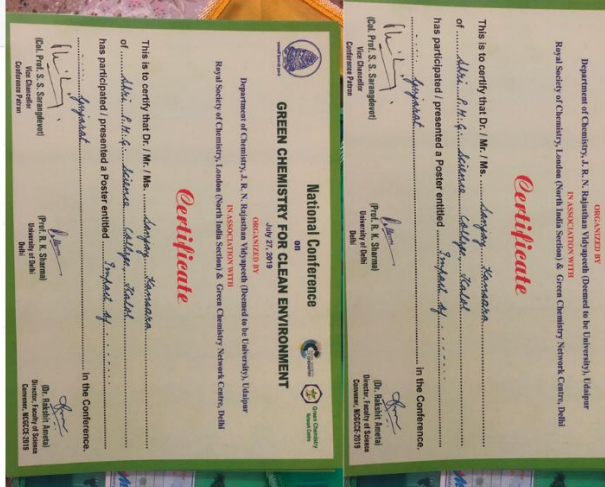 National Conference
on
GREEN CHEMISTRY FOR CLEAN ENVIRONMENT
July 27, 2019
Green Chemistry
Network Centre
ORGANIZED BY
Department of Chemistry, J. R. N. Rajasthan Vidyapeeth (Deemed to be University), Udaipur
IN ASSOCIATION WITH
Royal Society of Chemistry, London (North India Section) & Green Chemistry Network Centre, Delhi
Certificate
This is to certify that Dr. / Mr. / Ms. Sanjay Kansara
of Shri P.M.G. Science College, Kalol
has participated / presented a Poster entitled Impact of
Gujarat in the Conference.
(Col. Prof. S. S. Sarangdevot)
Vice Chancellor
Conference Patron
(Prof. R. K. Sharma)
University of Delhi
Delhi
(Dr. Rakshit Ameta)
Director, Faculty of Science
Convener, NCGCCE-2019
Department of Chemistry, J. R. N. Rajasthan Vidyapeeth (Deemed to be University), Udaipur
IN ASSOCIATION WITH
Royal Society of Chemistry, London (North India Section) & Green Chemistry Network Centre, Delhi
Certificate
This is to certify that Dr. / Mr. / Ms. Sanjay Kansara
of Shri P.M.G. Science College Kalol
has participated / presented a Poster entitled Impact of
Gujarat in the Conference.
(Col. Prof. S. S. Sarangdevot)
Vice Chancellor
Conference Patron
(Prof. R. K. Sharma)
University of Delhi
Delhi
(Dr. Rakshit Ameta)
Director, Faculty of Science
Convener, NCGCCE-2019